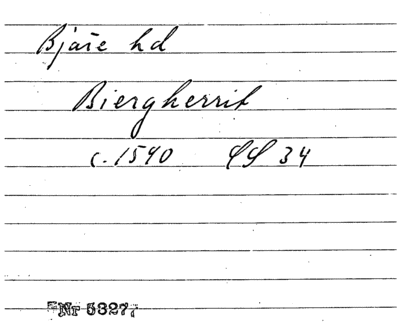 Bjäre hd
Biergherrit
c. 1540 SS 34
Nr 5327